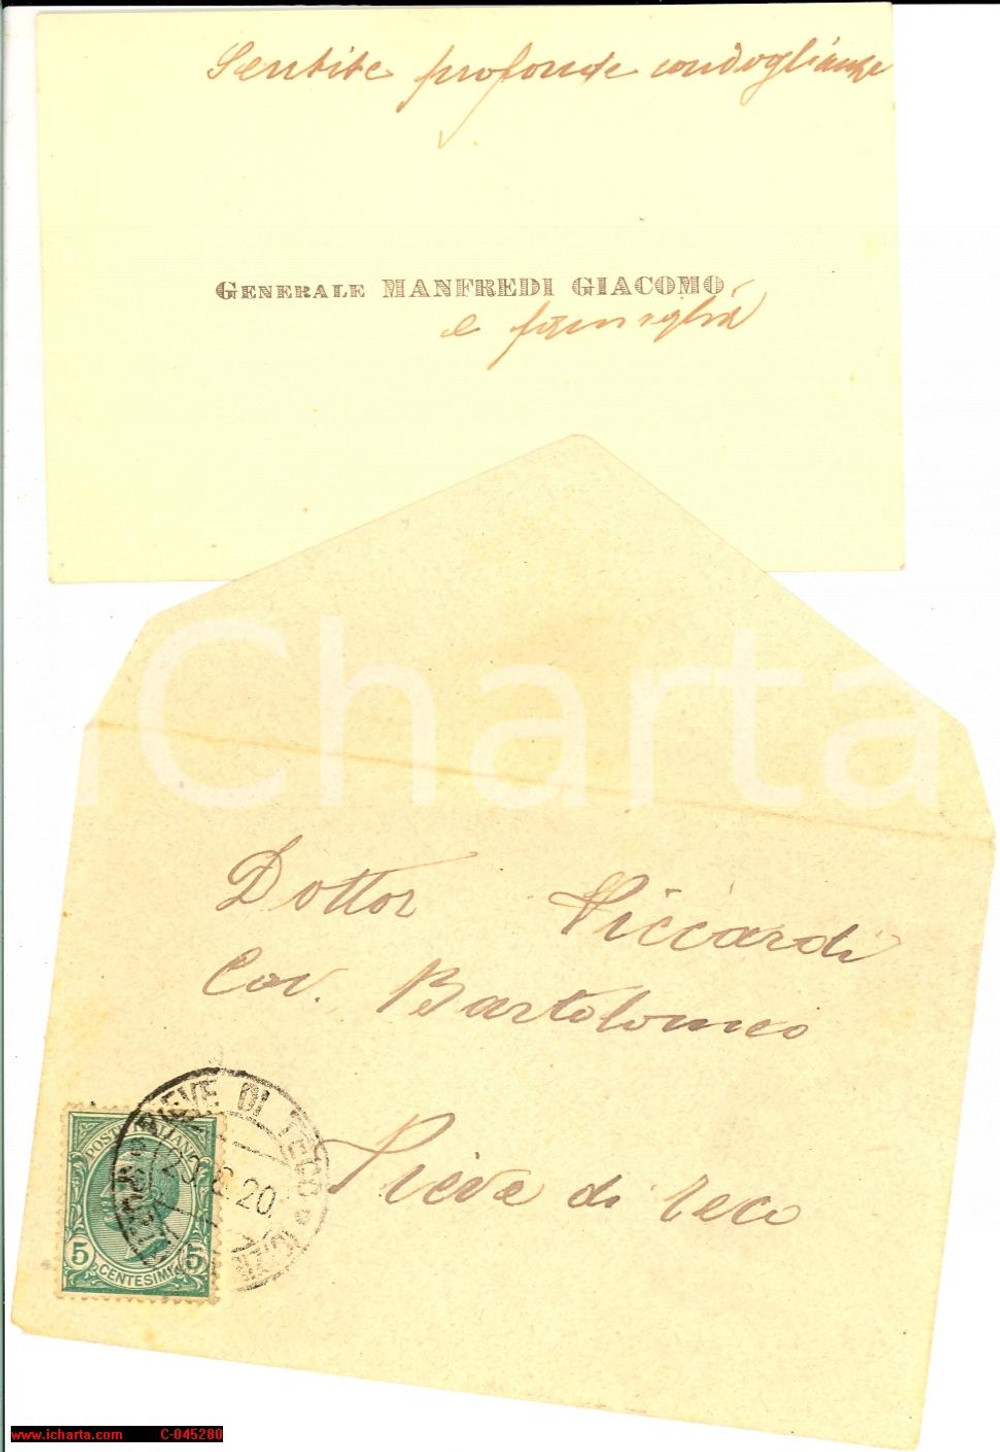 Sentite profonde condoglianze
GENERALE MANFREDI GIACOMO
e famiglia
iCharta
Dottor Viccardi
Cav. Bartolomeo
Pieve di Teco
PIEVE DI TECO
23.6.20
POSTE ITALIANE
5 5
CENTESIMI
www.icharta.com C-045280